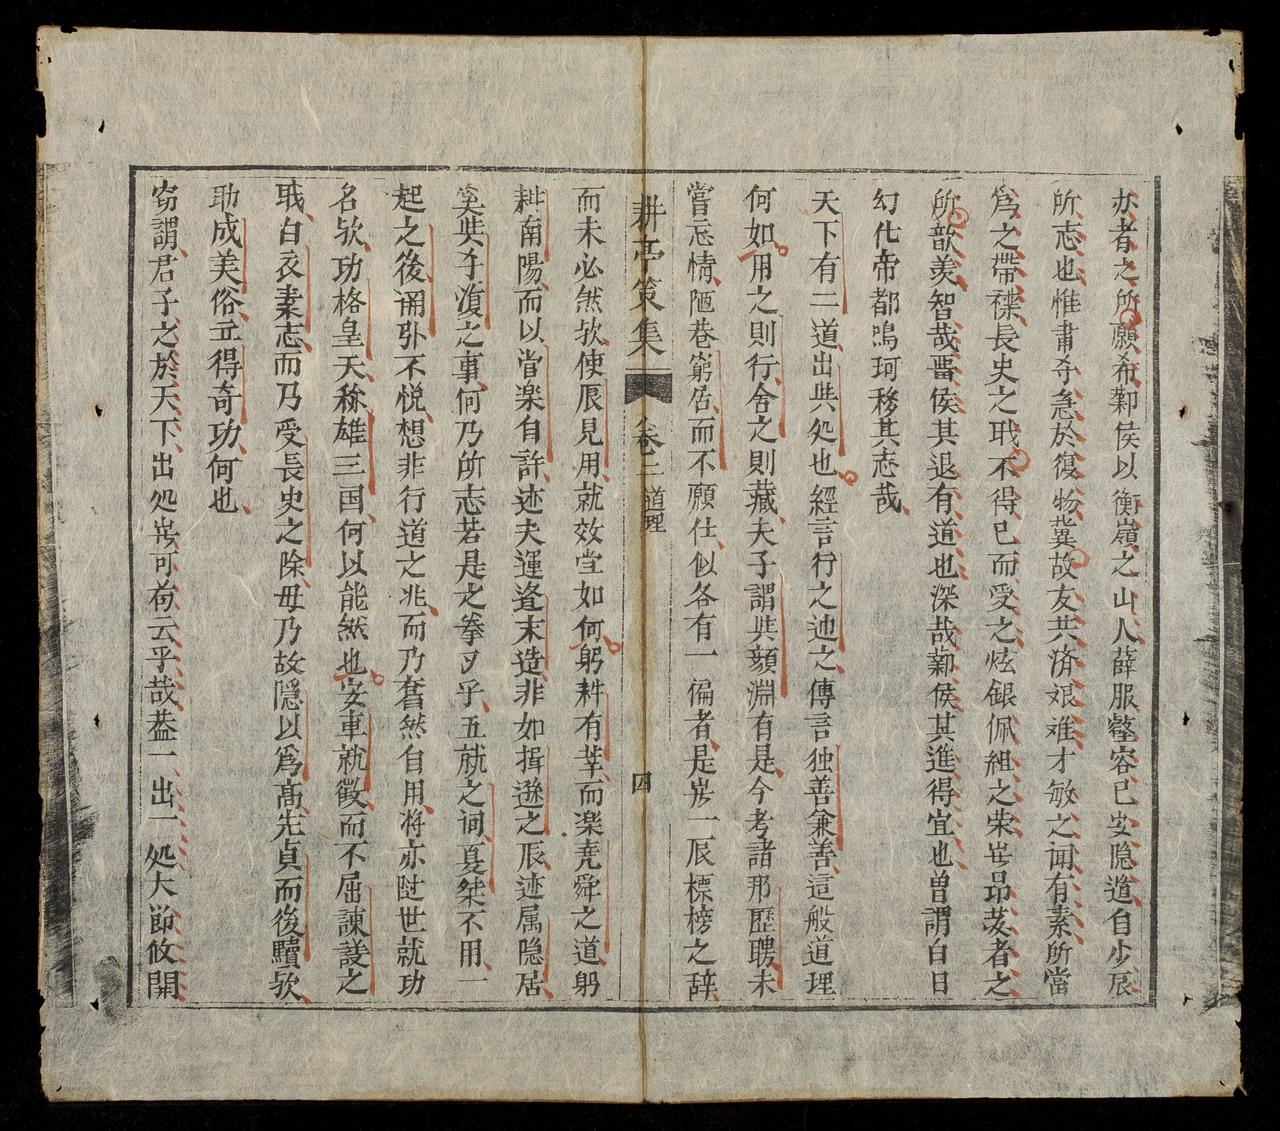 亦者之所願希鄴侯以衡嶺之山人薛服蹩容已安隐遁自少辰
所志也惟肅夺急於復物冀故友共済艰难才敏之闻有素所當
爲之帶襟長史之戢不得已而受之炫銀佩組之荣岂昂茇者之
所歆美智哉晋侯其退有道也深哉鄴侯其進得宜也曽謂白日
幻化帝都鳴珂移其志哉
天下有二道出与処也經言行之迪之傳言独善兼善這般道理
何如用之則行舍之則藏夫子謂与顔淵有是今考諸那歴聘未
嘗忘情陋巷窮居而不願仕似各有一徧者是岂一辰標榜之辞
耕亭策集 卷二 道理 四
而未必然欤使辰見用就效当如何躬耕有莘而楽堯舜之道躬
耕南陽而以尝楽自許迹夫運逢末造非如揖遜之辰迹属隐居
奚与乎復之事何乃所志若是之拳〻乎五就之问夏桀不用一
起之後诵引不悦想非行道之兆而乃奮然自用将亦時世就功
名欤功格皇天称雄三国何以能然也安車就徵而不屈諫諼之
戢白衣素志而乃受長史之除毋乃故隱以爲高先貞而後黷欤
助成美俗立得奇功何也
窃謂君子之於天下出処岂可苟云乎哉盖一出一処大節攸関